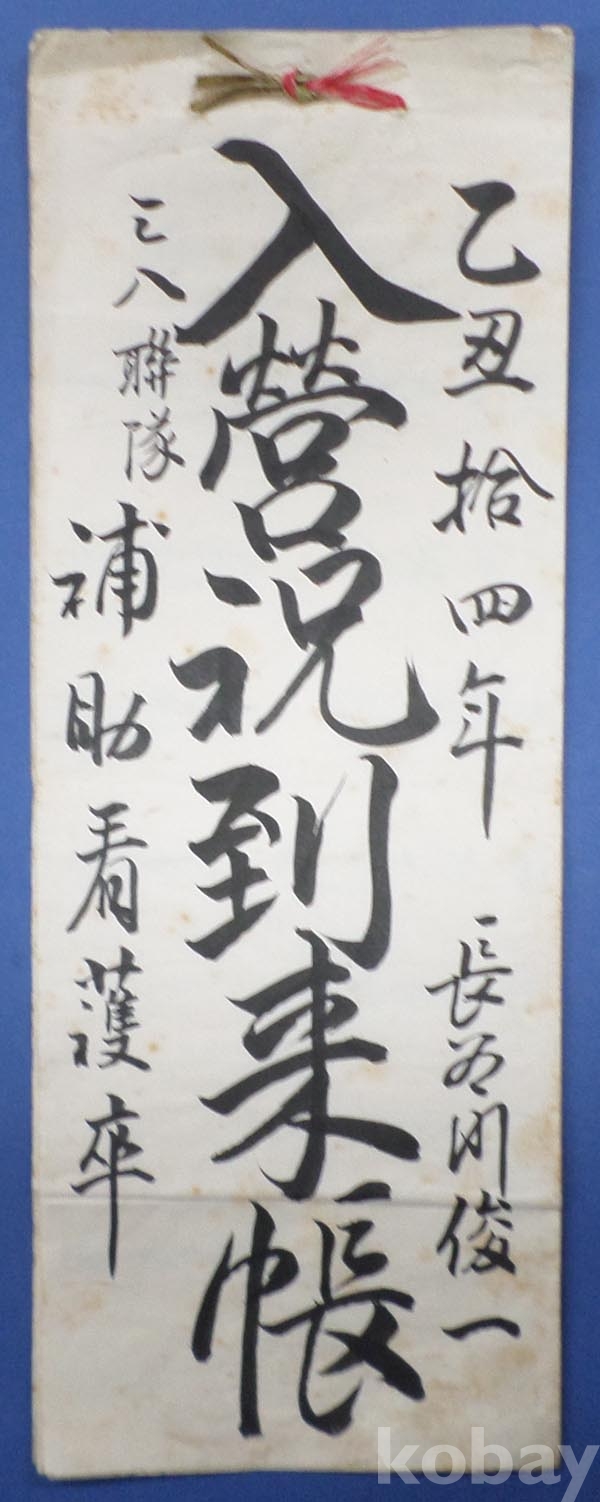 乙丑拾四年 長谷川俊一
入營祝到来帳
三八聯隊 補助看護卒
kobay